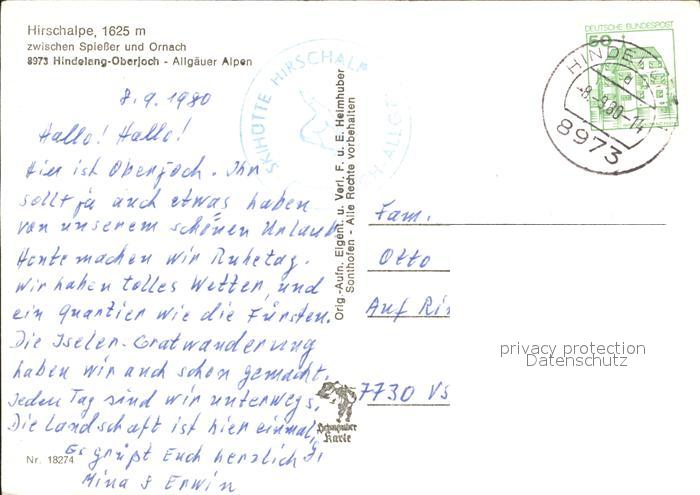 Hirschalpe, 1625 m
zwischen Spießer und Ornach
8973 Hindelang-Oberjoch - Allgäuer Alpen
8.9.1980
Hallo! Hallo!
Hier ist Oberjoch. Ihr
sollt ja auch etwas haben
von unserem schönen Urlaub
Heute machen wir Ruhetag.
Wir haben tolles Wetter, und
ein Quartier wie die Fürsten.
Die Iseler-Gratwanderung
haben wir auch schon gemacht.
Jeden Tag sind wir unterwegs.
Die Landschaft ist hier einmalig
Es grüßt Euch herzlich
Mina & Erwin
Nr. 18274
SKIHÜTTE HIRSCHALP
Orig.-Aufn. Eigent. u. Verl. F. u. E. Heimhuber
Sonthofen - Alle Rechte vorbehalten
Heimhuber
Karte
DEUTSCHE BUNDESPOST
50
HINDE
-8.-9.80-14
8973
Fam.
Otto
Auf Ri
7730 VS
privacy protection
Datenschutz